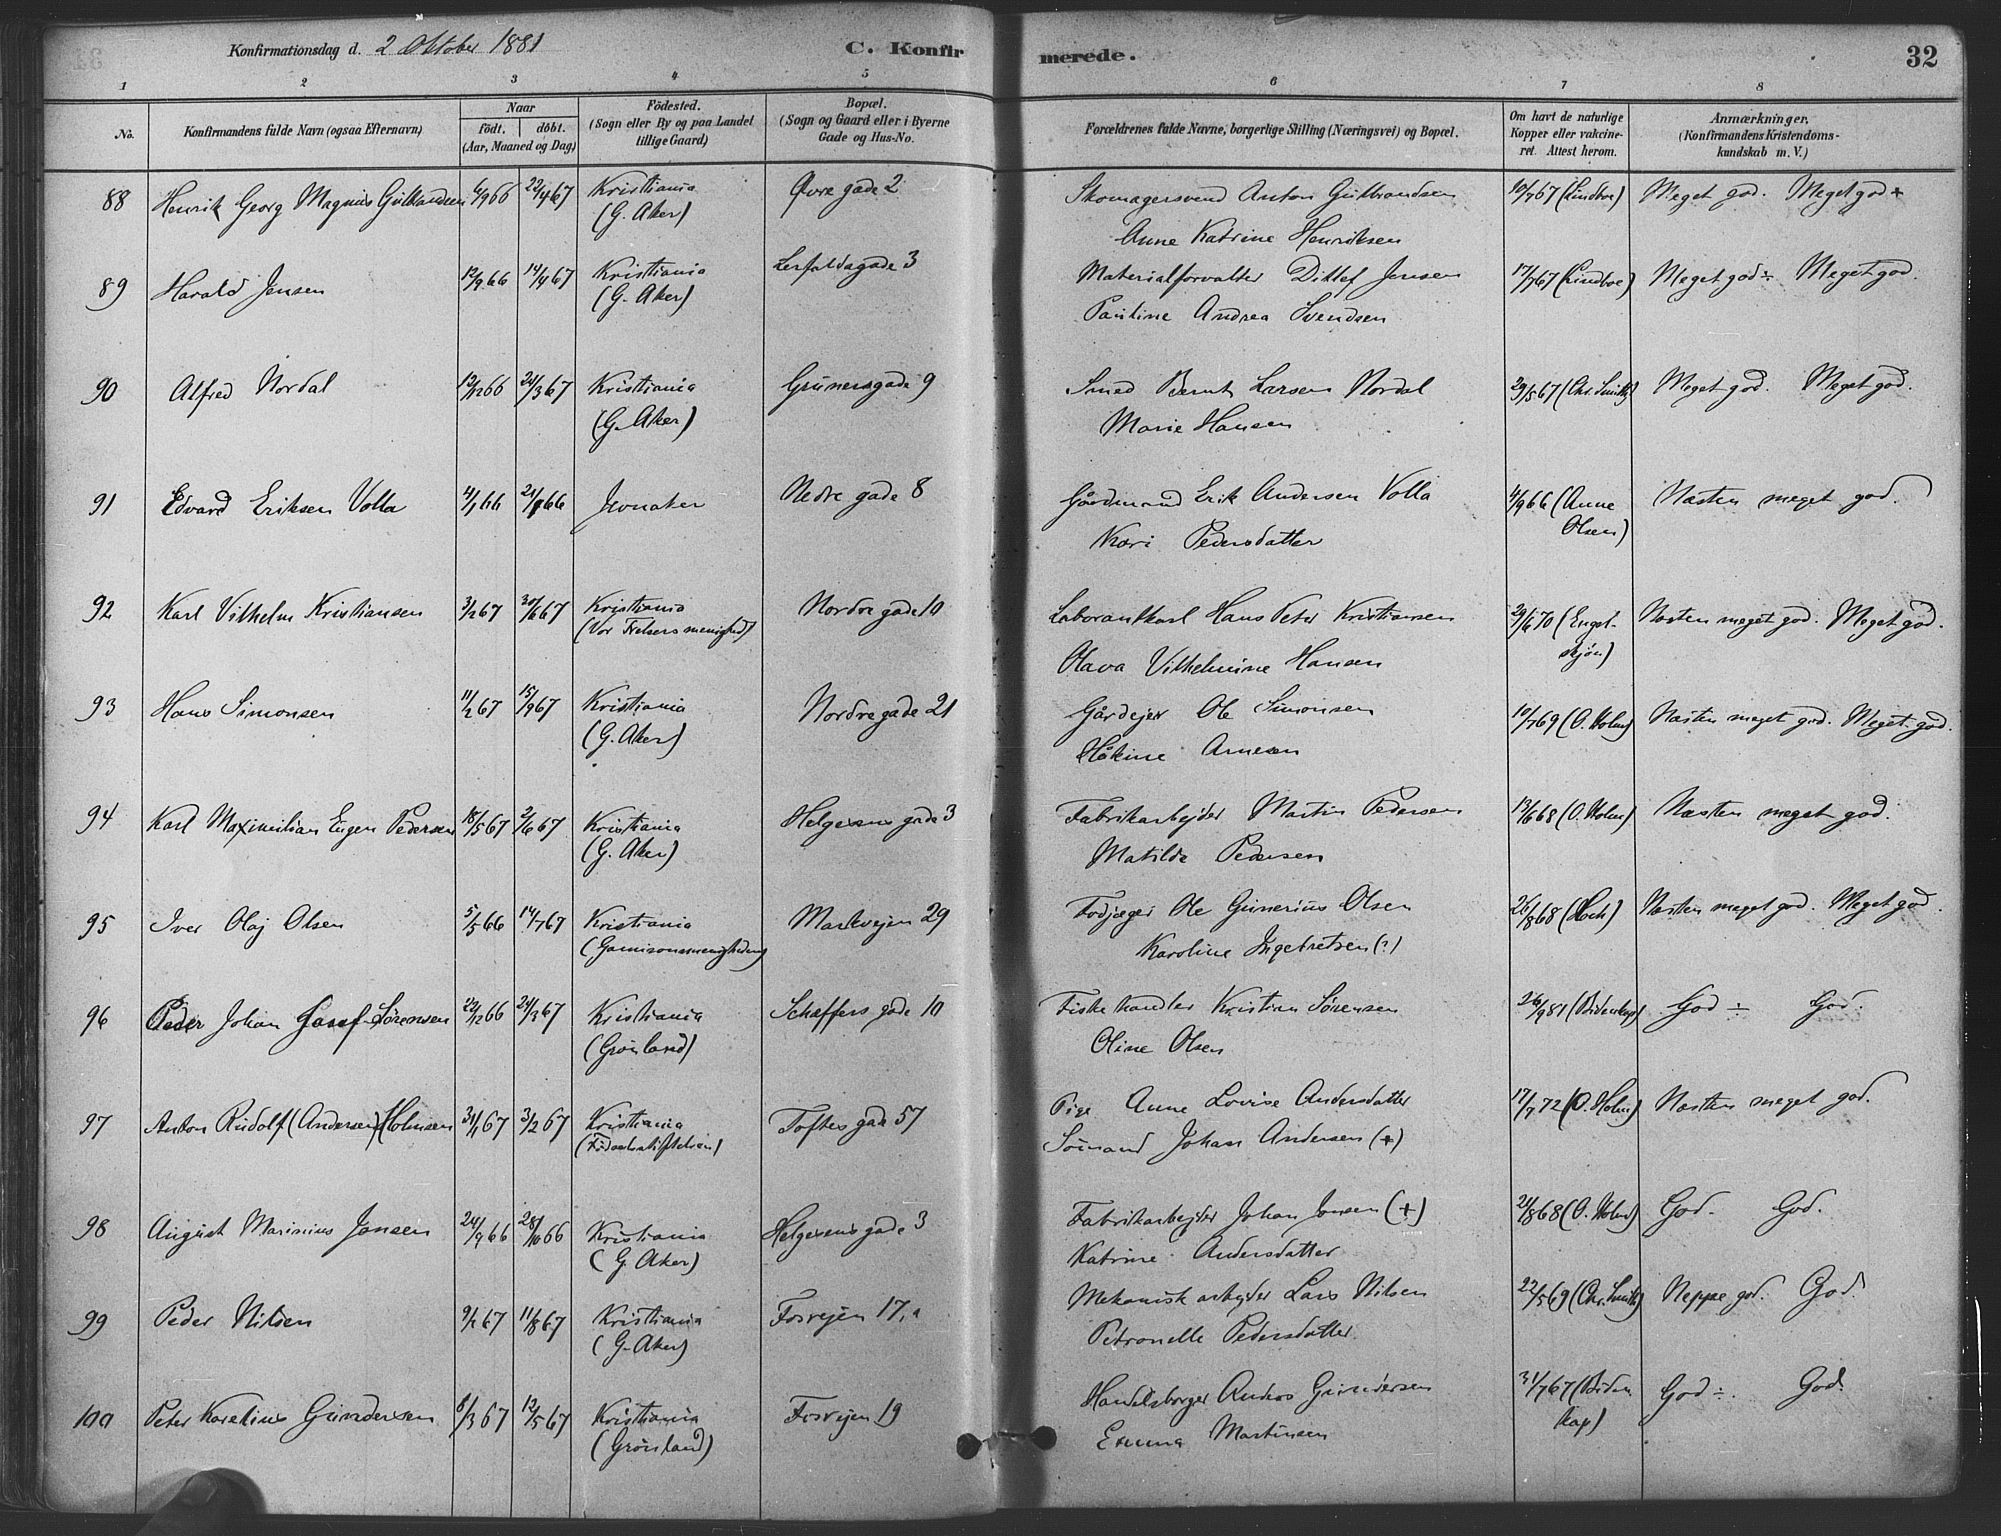 Konfirmationsdag d. 2 Oktober 1881
C. Konfirmerede.
32
1 2 3 4 5 6 7 8
No.
Konfirmandens fulde Navn (ogsaa Efternavn)
Naar
födt. döbt.
(Aar, Maaned og Dag)
Födested.
(Sogn eller By og paa Landet
tillige Gaard)
Bopæl.
(Sogn og Gaard eller i Byerne
Gade og Hus-No.
Forældrenes fulde Navne, borgerlige Stilling (Næringsvei) og Bopæl.
Om havt de naturlige
Kopper eller vakcine-
ret. Attest herom.
Anmærkninger,
(Konfirmandens Kristendoms-
kundskab m. V.)
88 Henrik Georg Magnus Gulbrandsen 6/9 66 22/4 67 Kristiania Øvre gade 2 Skomagersvend Anton Gulbrandsen 10/7 67 (Lindboe) Meget god. Meget god +
(G. Aker) Anne Katrine Henriksen
89 Harald Jensen 12/9 66 14/4 67 Kristiania Lerfaldsgade 3 Materialforvalter Ditlef Jensen 17/7 67 (Lindboe) Meget god ÷ Meget god.
(G. Aker) Pauline Andrea Svendsen
90 Alfred Nordal 12/12 66 24/3 67 Kristiania Grünersgade 9 Smed Bernt Larsen Nordal 29/5 67 (Chr. Smith) Meget god. Meget god.
(G. Aker) Marie Hansen
91 Edvard Eriksen Volla 4/1 66 21/1 66 Jevnaker Nedre gade 8 Gårdmand Erik Andersen Volla 4/9 66 (Anne Næsten meget god.
Kari Pedersdatter Olsen)
92 Karl Vilhelm Kristiansen 3/2 67 30/6 67 Kristiania Nordre gade 10 Laborantkarl Hans Peter Kristiansen 29/6 70 (Engel- Næsten meget god. Meget god.
(Vor Frelsers menighed) Olava Vilhelmine Hansen skjøn)
93 Hans Simonsen 11/2 67 15/9 67 Kristiania Nordre gade 21 Gårdejer Ole Simonsen 10/7 69 (O. Holm) Næsten meget god. Meget god.
(G. Aker) Håkine Arnesen
94 Karl Maximilian Eugen Pedersen 18/5 67 2/6 67 Kristiania Helgesens gade 3 Fabrikarbejder Martin Pedersen 13/6 68 (O. Holm) Næsten meget god.
(G. Aker) Matilde Pedersen
95 Iver Olaj Olsen 5/5 66 14/7 67 Kristiania Markvejen 29 Fodjæger Ole Gunerius Olsen 26/8 68 (Hoch) Næsten meget god. Meget god.
(Garnisonsmenigheden) Karoline Ingebretsen (?)
96 Peder Johan Josef Sørensen 22/12 66 24/3 67 Kristiania Schæffers gade 10 Fiskehandler Kristian Sørensen 26/9 81 (Bidenkap) God ÷ God.
(Grønland) Oline Olsen
97 Anton Rudolf (Andersen) Holmsen 31/1 67 3/2 67 Kristiania Toftes gade 57 Pige Anne Lovise Andersdatter 17/7 72 (O. Holm) Næsten meget god.
(Fødselsstiftelsen) Sømand Johan Andersen (+)
98 August Marinius Jonsen 24/9 66 28/10 66 Kristiania Helgesens gade 3 Fabrikarbejder Johan Jonsen (+) 21/8 68 (O. Holm) God. God.
(G. Aker) Katrine Andersdatter
99 Peder Nilsen 9/2 67 11/8 67 Kristiania Fosvejen 17,a Mekanisk arbejder Lars Nilsen 22/5 69 (Chr. Smith) Neppe god. God.
(G. Aker) Petronelle Pedersdatter
100 Peter Karelius Gundersen 8/3 67 12/5 67 Kristiania Fosvejen 19 Handelsborger Anders Gundersen 31/7 67 (Biden God ÷. God.
(Grønland) Emma Martinsen kap)